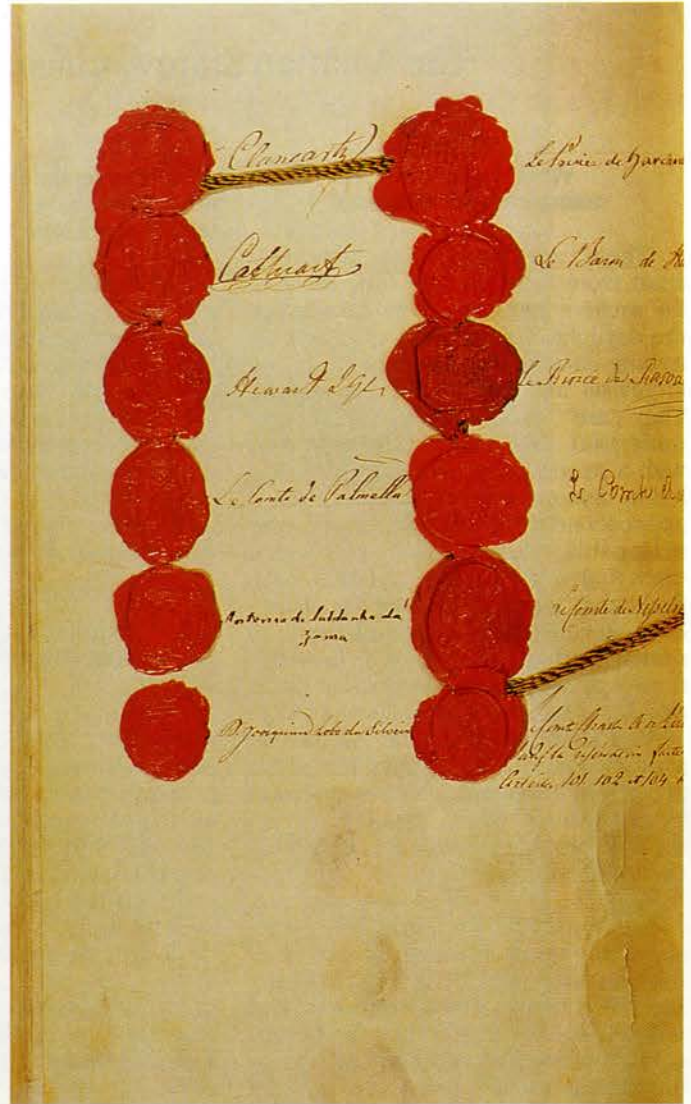 Clancarty
Cathcart
Stewart L. G.
Le Comte de Palmella
Antonio de Saldanha da
Gama
D. Joaquim Lobo da Silveira
Le Prince de Harden
Le Baron de
Le Prince de Rasou
Le Comte
Le Comte de Nesselro
Le Comte
Articles 101. 102 et 104